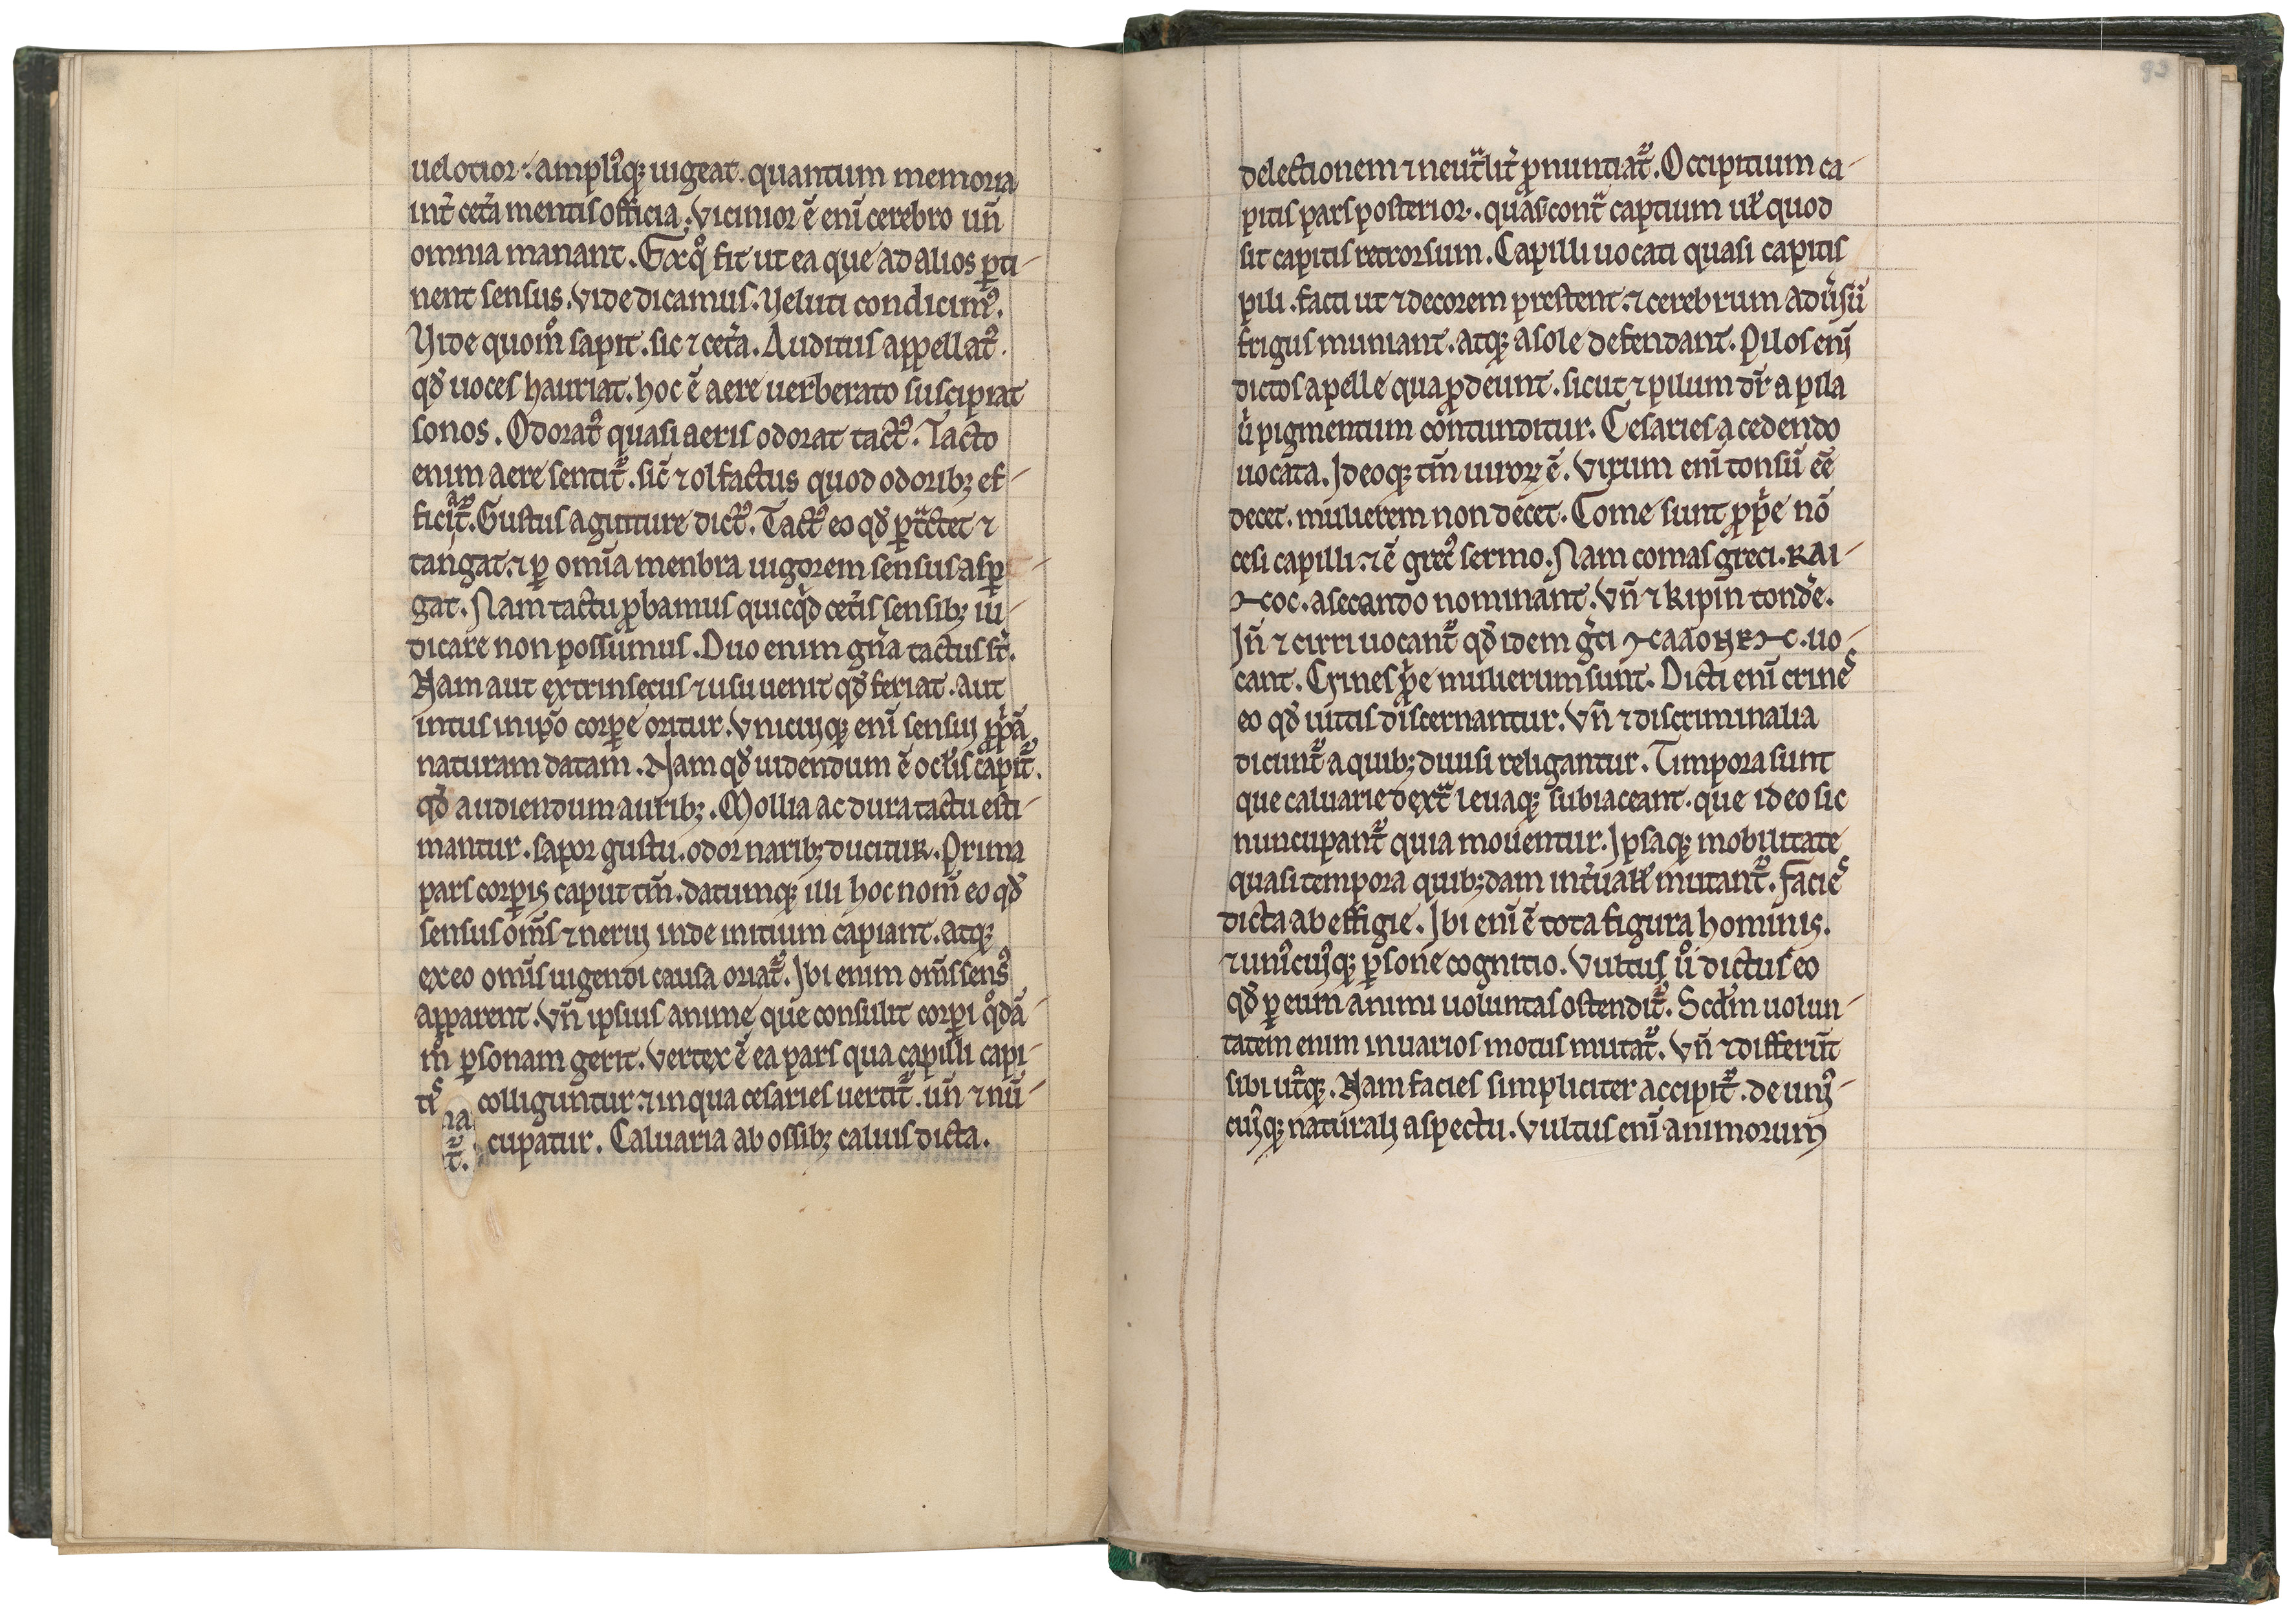 uelotior. ampli᷒q; uigeat. quantum memoria
int̉ cet̉a mentis officia. Vicinior ē eni̅ cerebro un̅
omnia manant. Ex q̊ fit ut ea que ad alios p̱ti-
nent sensus. Vide dicamus. Veluti condicim᷒.
Vide quom̊ sapit. sic ⁊ cet̉a. Auditus appellat᷒.
qđ uoces hauriat. hoc ē aere uerberato suscipiat
sonos. Odorat᷒ quasi aeris odorat tact᷒. Tacto
enim aere sentit᷑. sic̅ ⁊ olfactus quod odorib; ef-
ficiat᷑. Gustus a gutture dict᷒. Tact᷒ eo qđ p̱tͣctet ⁊
tangat. ⁊ p̱ omīa menbra uigorem sensus asp̱-
gat. Nam tactu ꝓbamus quicqͥd cet̉is sensib; iu-
dicare non possumus. Duo enim gn̉a tactus st̅.
Nam aut extrinsecus ⁊ usu uenit qđ feriat. aut
intus in ip̅o corp̱e oritur. Vnicuiq; eni̅ sensui ꝓpͥā
naturam datam. Nam qđ uidendum ē ocl̓is capit᷑.
qđ audiendum aurib;. Mollia ac dura tactu esti-
mantur. sapor gustu. odor narib; ducitur. Prima
pars corp̱is caput tm̅. datumq; illi hoc nom̅ eo qđ
sensus om̅s ⁊ nerui inde initium capiant. atq;
ex eo om̅is uigendi causa oriat᷑. Ibi enim om̅s sens᷒
apparent. Vn̅ ipsius anime que consulit corp̱i q̊dā-
m̊ p̱sonam gerit. Vertex ē ea pars qua capilli capi-
tis colliguntur. ⁊ in qua cesaries uertit᷑. un̅ ⁊ nū-
cupatur. Caluaria ab ossib; caluis dicta.
na
t᷑.
83
delectionem ⁊ neutͣlit̉ ꝓnuntiat᷑. Occipitium ca-
pitis pars posterior. quasi contͣ captium ul̓ quod
sit capitis retrorsum. Capilli uocati quasi capitis
pili. facti ut ⁊ decorem prestent. ⁊ cerebrum adu̓sū
frigus muniant. atq; a sole defendant. Pilos eni̅
dictos a pelle qua ꝓdeunt. sicut ⁊ pilum dr̅ a pila
u̓ pigmentum contunditur. Cesaries a cedendo
uocata. Ideoq; tm̅ uiroꝝ ē. Virum eni̅ tonsū eē
decet. mulierem non decet. Come sunt ꝓpͥe nō
cesi capilli. ⁊ ē grec᷒ sermo. Nam comas greci. KAI-
ꞪCOC. a secando nominant. Vn̅ ⁊ kipin tond̉e.
In̅ ⁊ cirri uocant᷑ qđ idem gͥci ꞪCAΛOHKꞪC. uo-
cant. Crines ꝓpͥe mulierum sunt. Dicti eni̅ crines
eo qđ uittis discernantur. Vn̅ ⁊ discriminalia
dicunt᷑ a quib; diuisi religantur. Timpora sunt
que caluarie dextͣ leuaq; subiaceant. que ideo sic
nuncupant᷑ quia mouentur. Ipsaq; mobilitate
quasi tempora quib;dam int̉uall̓ mutant᷑. Facies
dicta ab effigie. Ibi eni̅ ē tota figura hominis.
⁊ uni᷒cuiq; p̱sone cognitio. Vultus ů dictus eo
qđ p̱ eum animi uoluntas ostendit᷑. Scd̓m uolun-
tatem enim in uarios motus mutat᷑. Vn̅ ⁊ differūt
sibi utͥq;. Nam facies simpliciter accipit᷑. de uni᷒-
cuiq; naturali aspectu. Vultus eni̅ animorum